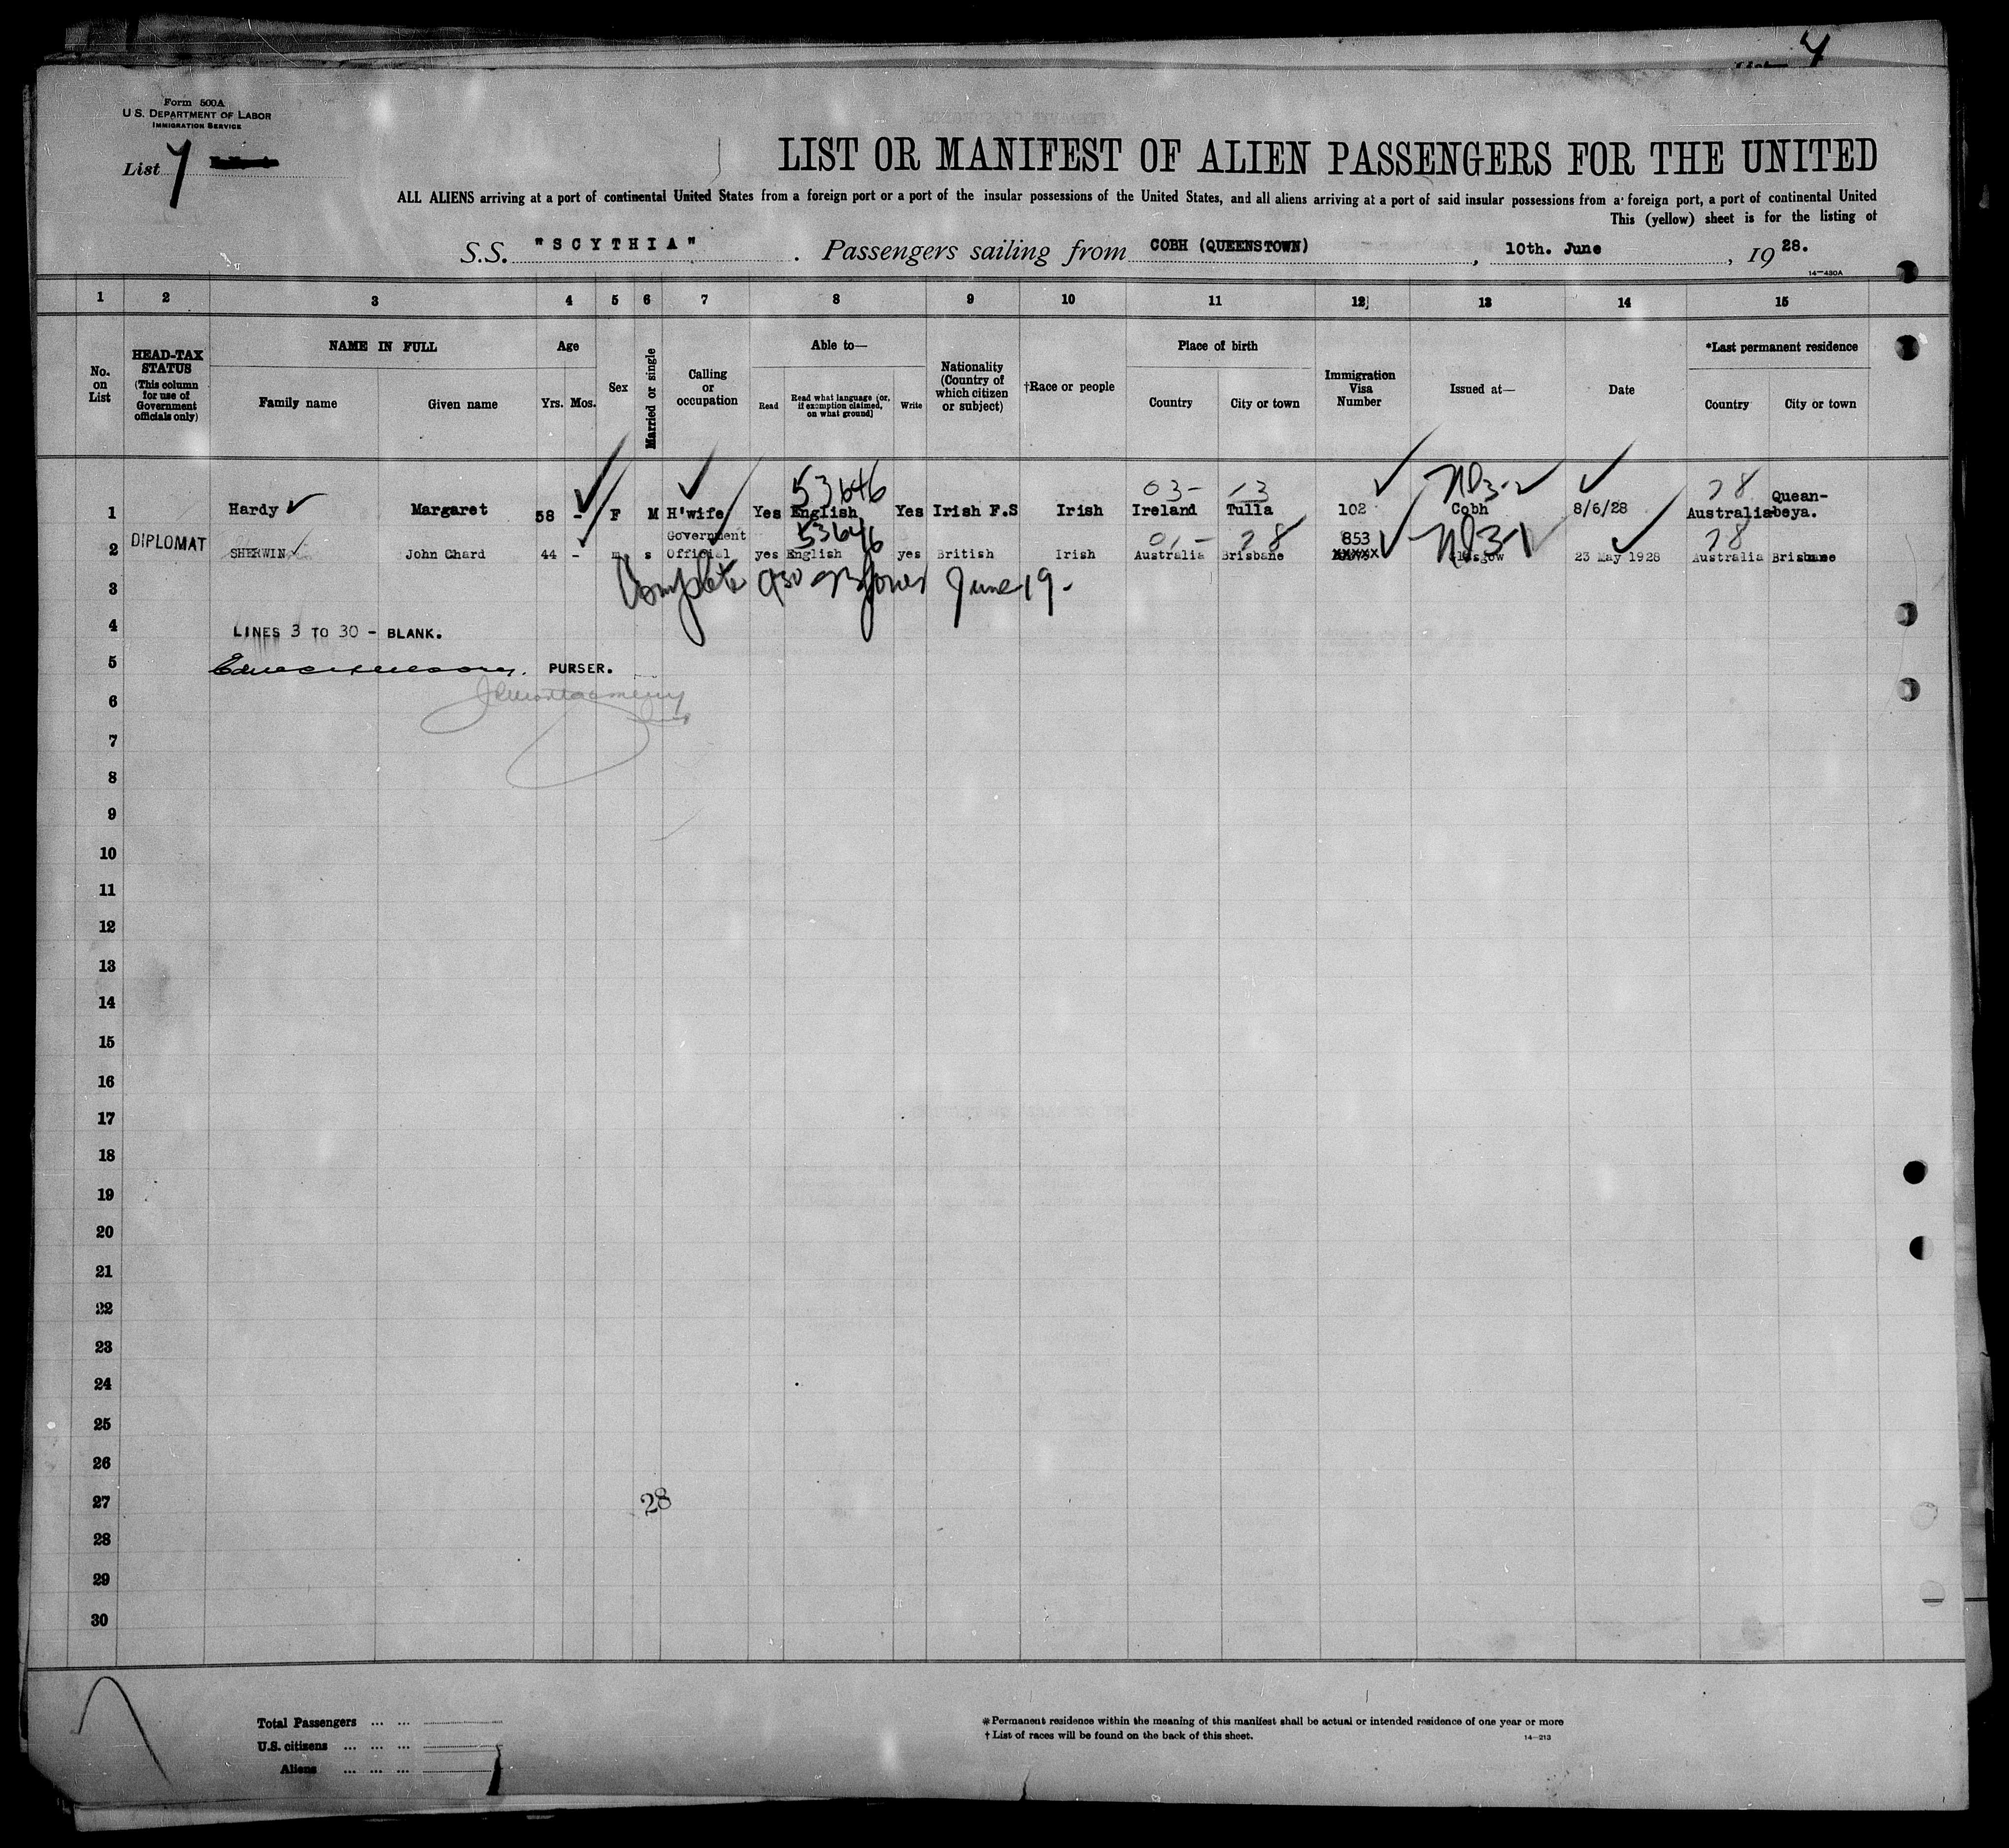 4
Form 500A
U.S. DEPARTMENT OF LABOR
IMMIGRATION SERVICE
List 7
LIST OR MANIFEST OF ALIEN PASSENGERS FOR THE UNITED
ALL ALIENS arriving at a port of continental United States from a foreign port or a port of the insular possessions of the United States, and all aliens arriving at a port of said insular possessions from a foreign port, a port of continental United
This (yellow) sheet is for the listing of
S.S. "SCYTHIA". Passengers sailing from COBH (QUEENSTOWN), 10th. June, 1928.
14-430A
1 2 3 4 5 6 7 8 9 10 11 12 13 14 15
No. on List
HEAD-TAX STATUS (This column for use of Government officials only)
NAME IN FULL
Family name Given name
Age
Yrs. Mos.
Sex
Married or single
Calling or occupation
Able to—
Read Read what language (or, if exemption claimed, on what ground) Write
Nationality (Country of which citizen or subject)
†Race or people
Place of birth
Country City or town
Immigration Visa Number
Issued at—
Date
*Last permanent residence
Country City or town
53646 03- 13 ND3-2 28
1 Hardy Margaret 58 - F M H'wife Yes English Yes Irish F.S Irish Ireland Tulla 102 Cobh 8/6/28 Australia Quean-beya.
53646 01- 28 ND3-1 28
2 DIPLOMAT SHERWIN John Chard 44 - m s Government Official yes English yes British Irish Australia Brisbane 853 Glasgow 23 May 1928 Australia Brisbane
3 Complete 930 Jones June 19.
4 LINES 3 TO 30 - BLANK.
5 PURSER.
6 Montgomery
7
8
9
10
11
12
13
14
15
16
17
18
19
20
21
22
23
24
25
26
27 28
28
29
30
Total Passengers ... ...
U.S. citizens ... ... ...
Aliens ... ... ...
*Permanent residence within the meaning of this manifest shall be actual or intended residence of one year or more
† List of races will be found on the back of this sheet.
14-213